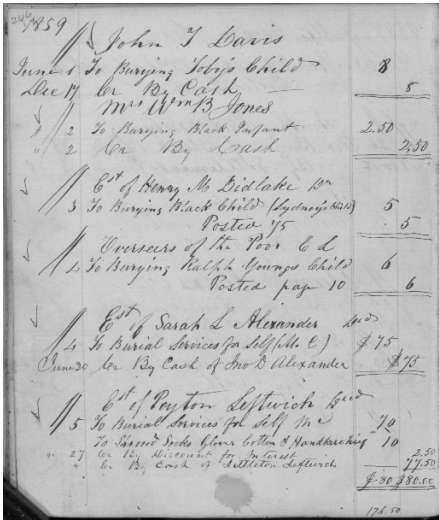 1859
John T Davis
June 1 To Burying Toby's Child 8
Dec 17 Cr By Cash — 8
Mrs Wm B Jones
" 2 To Burying Black Infant 2.50
" 2 Cr By Cash 2.50
Est of Henry M Didlake Dr
3 To Burying Black Child (Sydney's Child) 5
Posted 75 5
Overseers of the Poor C L
4 To Burying Ralph Youngs Child 6
Posted page 10 6
Est of Sarah L Alexander Decd
4 To Burial Services for Self (M C) $75
June 30 Cr By Cash of Jno D Alexander $75
Est of Peyton Leftwich Decd
5 To Burial Services for Self M C 70
To Socks Gloves Cotton & Handkerchief 10
" 27 Cr By Discount for Interest 2.50
" Cr By Cash of Littleton Leftwich 77.50
$80 $80.00
176.50